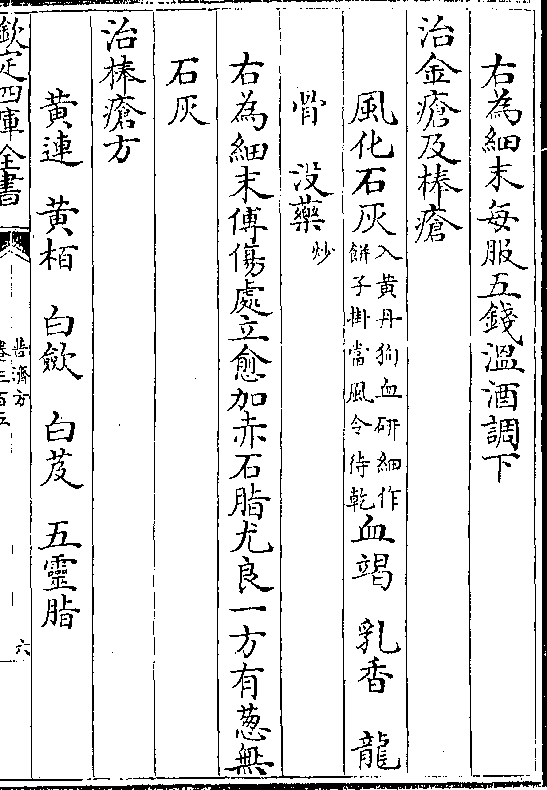 右為細末每服五錢溫酒調下
治金瘡及棒瘡
風化石灰入黃丹狗血研細作餅子掛當風令待乾血竭 乳香 龍
骨 沒藥炒
右為細末傅傷處立愈加赤石脂尤良一方有葱無
石灰
治棒瘡方
黃連 黃栢 白歛 白芨 五靈脂
欽定四庫全書
普濟方
卷三百五
六